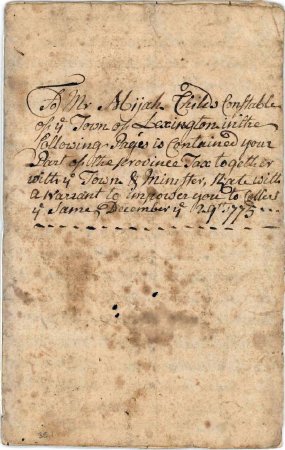 To Mr Abijah Childs Constable
of yͤ Town of Lexington in the
following Pages is Contained your
Part of the Province Tax together
with yͤ Town & Minister, Rate with
a warrant to impower you to Collect
yͤ Same December yͤ 29th 1773